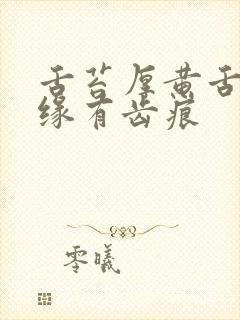 舌苔厚黄舌
缘有齿痕
零曦